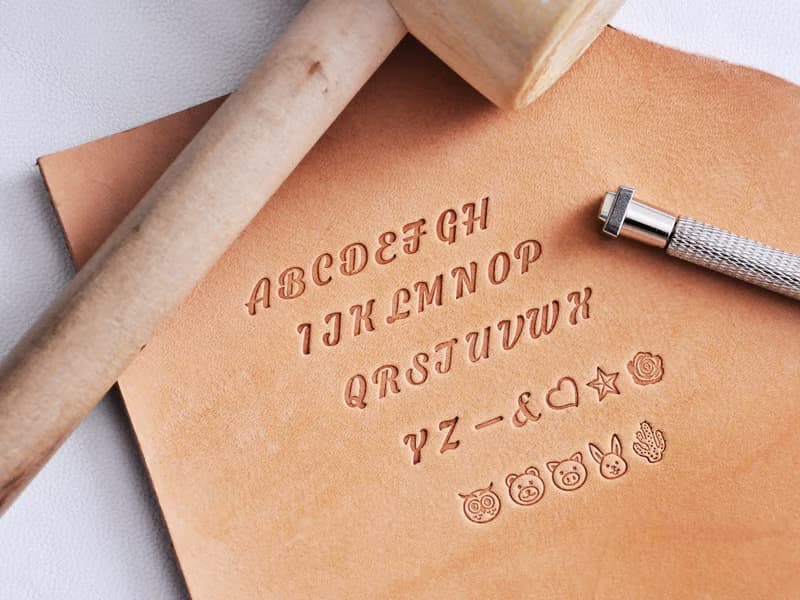 ABCDEFGH
IJKLMNOP
QRSTUVWX
YZ-&